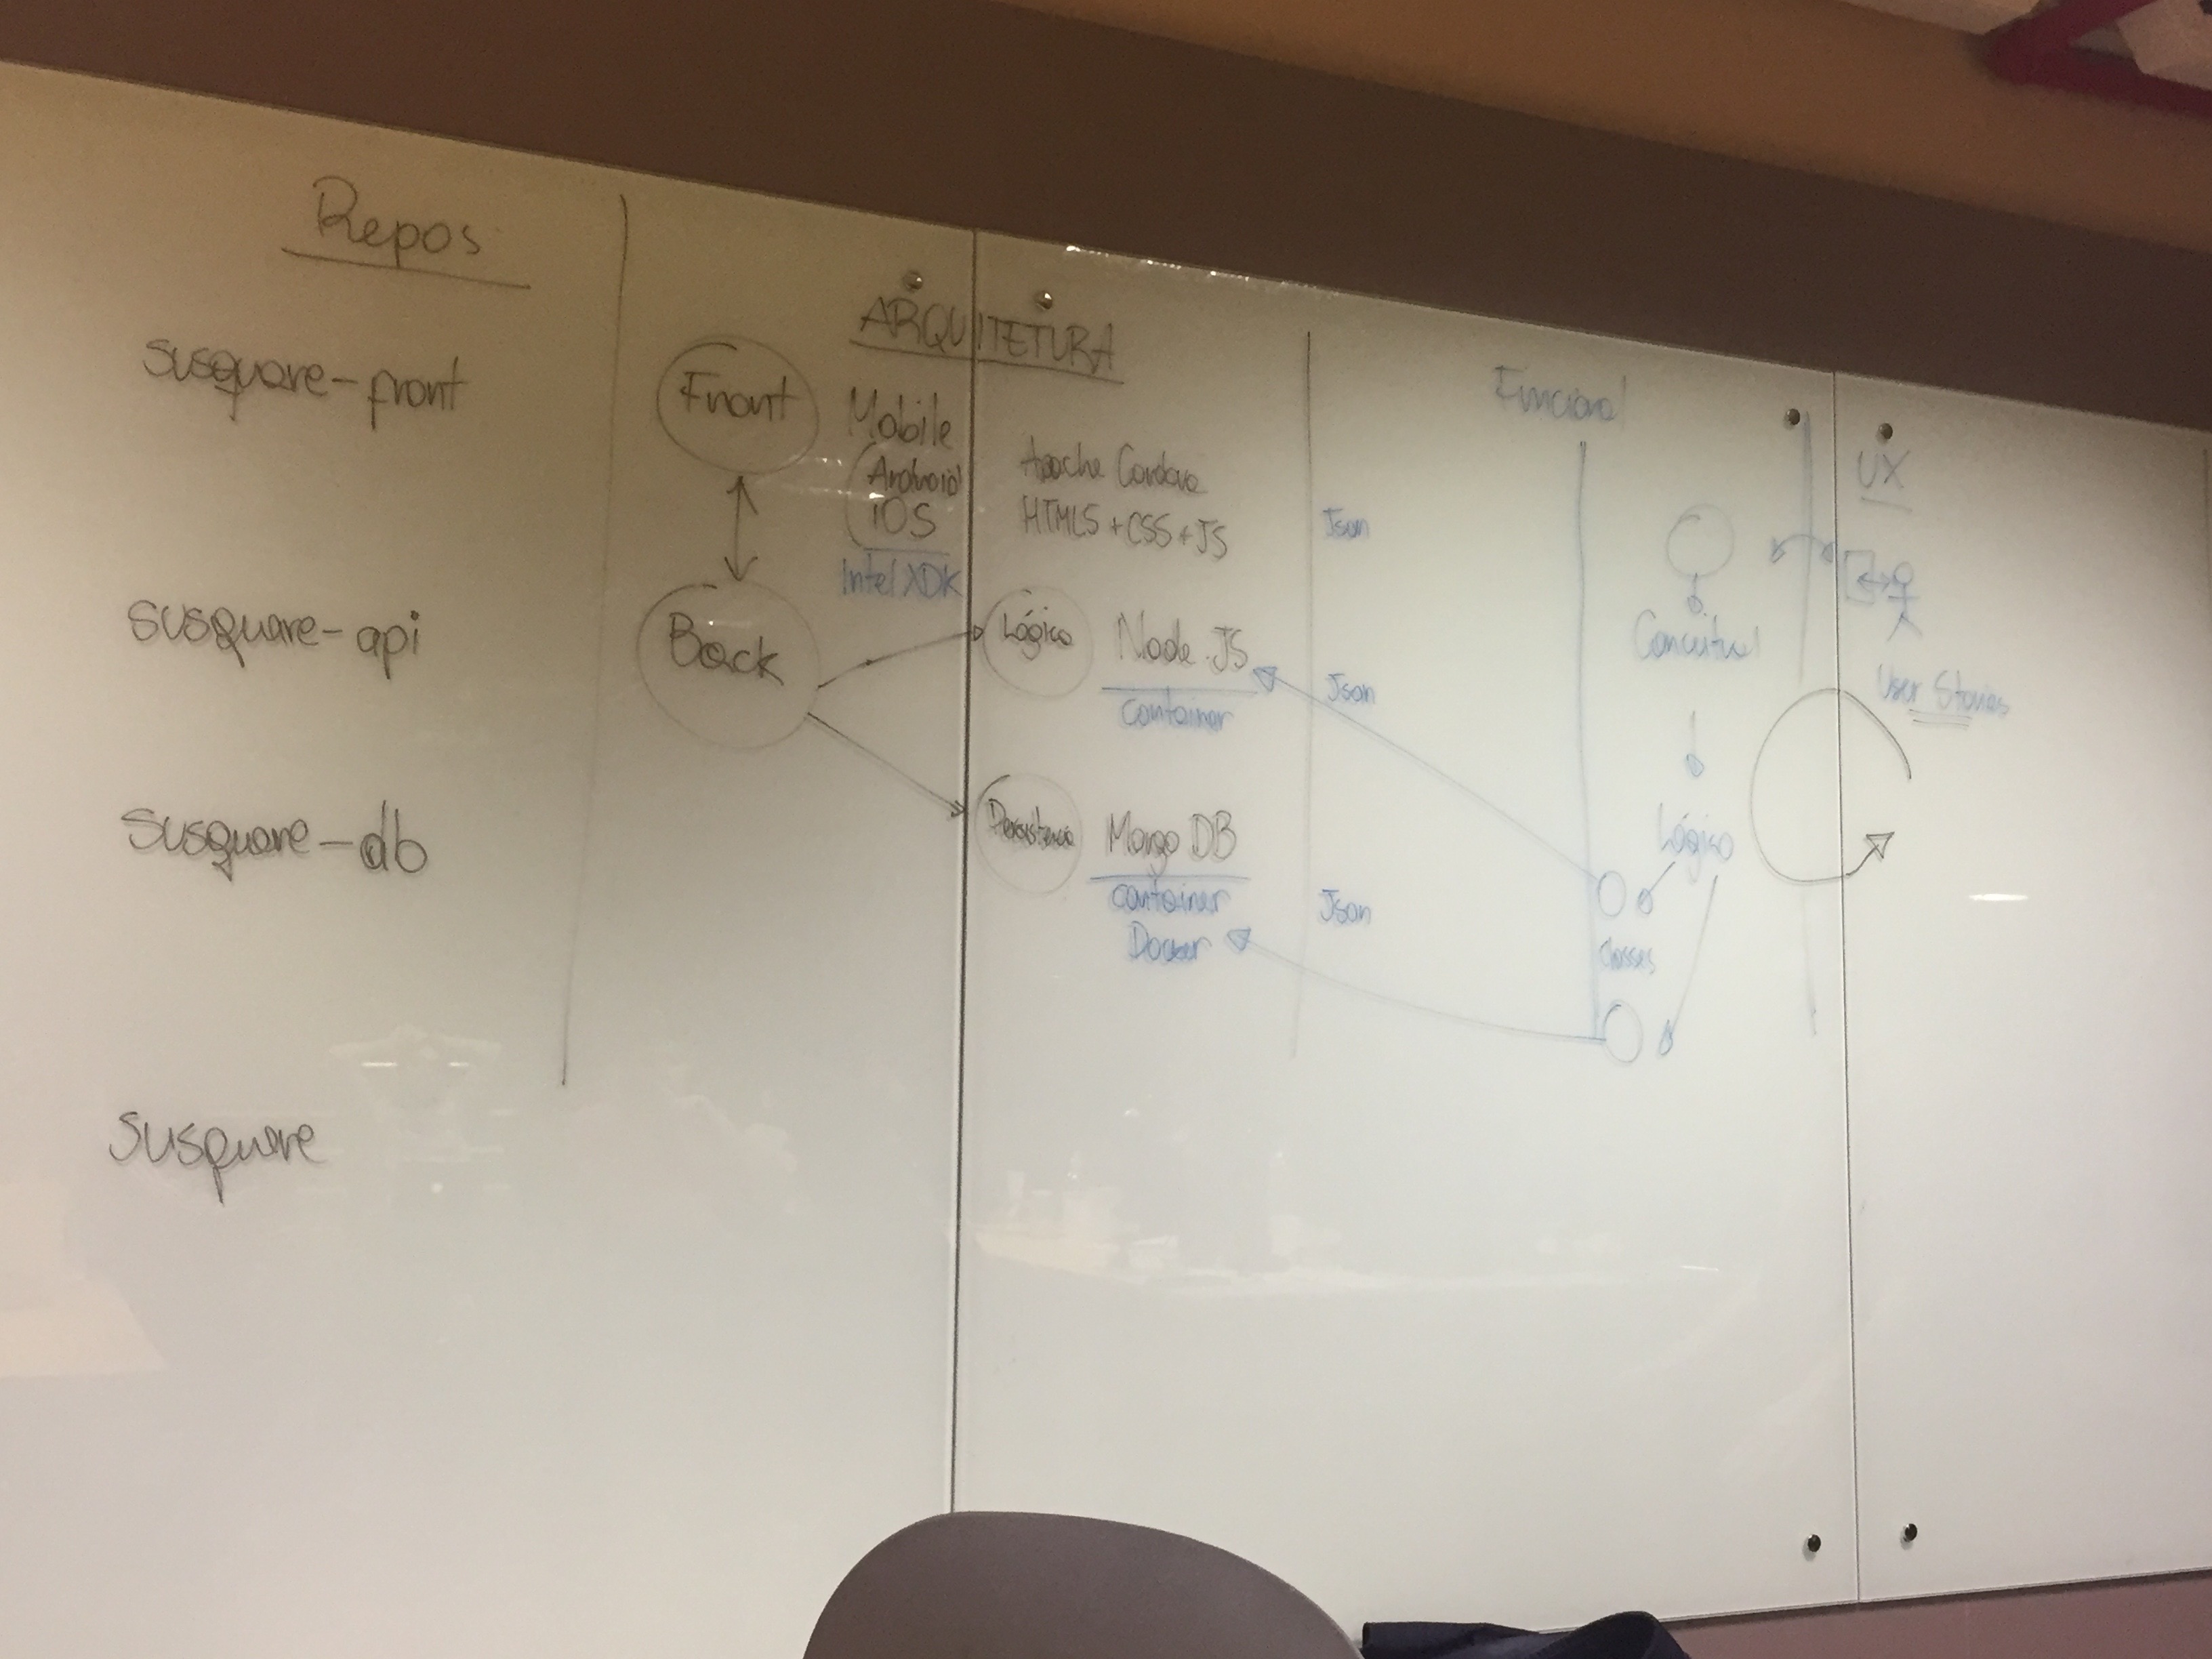 Repos
susquare-front
susquare-api
susquare-db
susquare
ARQUITETURA
Front
Mobile
Android
iOS
Intel XDK
Apache Cordova
HTML5 + CSS + JS
Back
Lógica
Node.JS
container
Persistência
Mongo DB
container
Docker
Json
Json
Json
Funcional
Conceitual
Lógico
classes
UX
User Stories